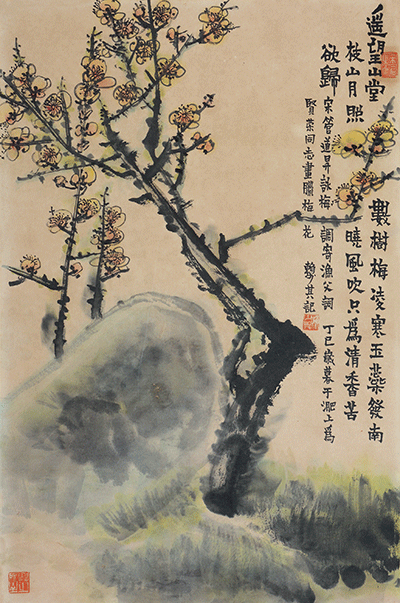 遥望山堂 數樹梅凌寒玉蕊發南
枝山月照 曉風吹只為清香苦
欲歸 宋管道昇詠梅調寄漁父詞 丁巳歲暮于淝上為
賢榮同志畫臘梅花 賴少其記